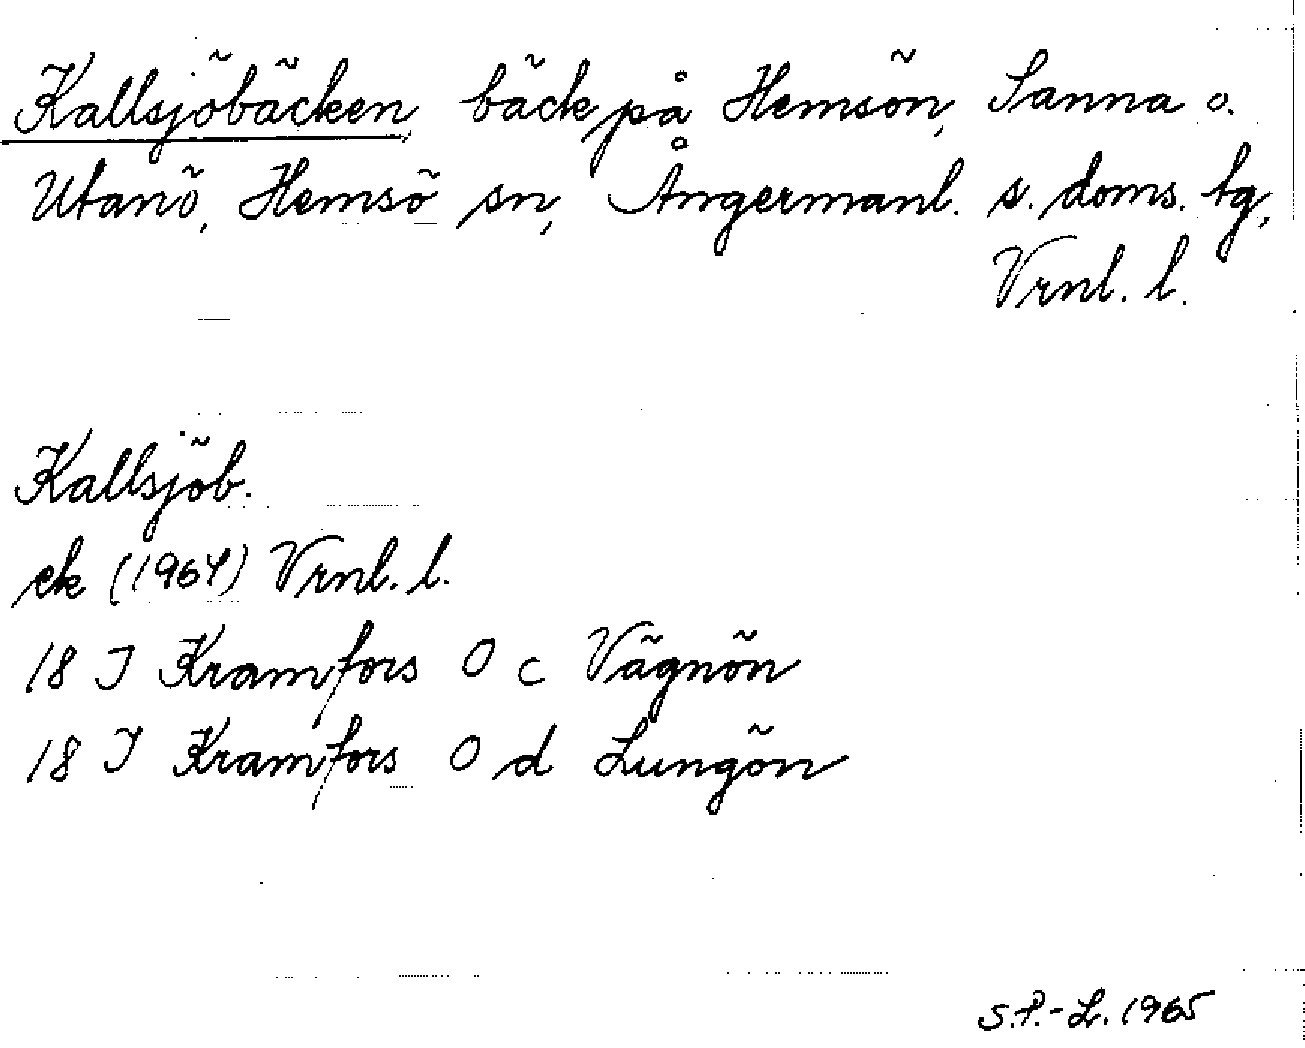 Kallsjöbäcken bäck på Hemsön, Sanna o.
Utanö, Hemsö sn, Ångermanl. s. doms. tg,
Vrnl. l.
Kallsjöb.
ek (1964) Vrnl. l.
18 I Kramfors O c Vägnön
18 I Kramfors O d Lungön
S.P.-L. 1965